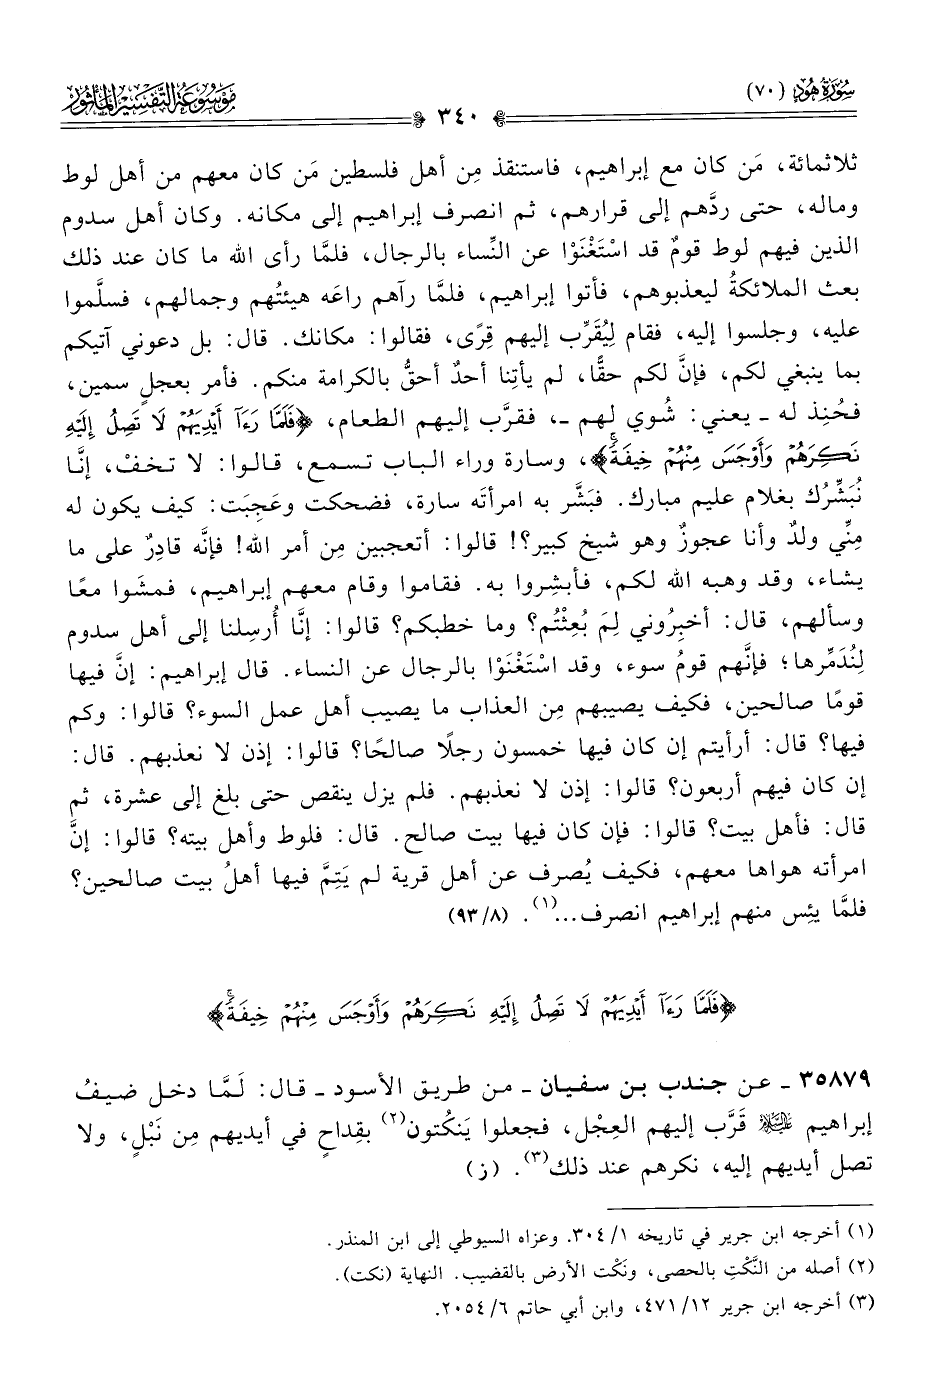 سُورَةُ هُودٍ (٧٠)
مَوْسُوعَةُ التَّفْسِيرِ المَأْثُورِ
٣٤٠
ثلاثمائة، مَن كان مع إبراهيم، فاستنقذ مِن أهل فلسطين مَن كان معهم من أهل لوط
وماله، حتى ردَّهم إلى قرارهم، ثم انصرف إبراهيم إلى مكانه. وكان أهل سدوم
الذين فيهم لوط قومٌ قد اسْتَغْنَوْا عن النِّساء بالرجال، فلمَّا رأى الله ما كان عند ذلك
بعث الملائكةُ ليعذبوهم، فأتوا إبراهيم، فلمَّا رآهم راعَه هيئتُهم وجمالهم، فسلَّموا
عليه، وجلسوا إليه، فقام لِيُقَرِّب إليهم قِرًى، فقالوا: مكانك. قال: بل دعوني آتيكم
بما ينبغي لكم، فإنَّ لكم حقًّا، لم يأتِنا أحدٌ أحقُّ بالكرامة منكم. فأمر بعجلٍ سمين،
فحُنِذ له ـ يعني: شُوي لهم ـ، فقرَّب إليهم الطعام، ﴿فَلَمَّا رَءَآ أَيْدِيَهُمْ لَا تَصِلُ إِلَيْهِ
نَكِرَهُمْ وَأَوْجَسَ مِنْهُمْ خِيفَةًۚ﴾، وسارة وراء الباب تسمع، قالوا: لا تخف، إنَّا
نُبَشِّرُك بغلام عليم مبارك. فبَشَّر به امرأتَه سارة، فضحكت وعَجِبَت: كيف يكون له
مِنِّي ولدٌ وأنا عجوزٌ وهو شيخ كبير؟! قالوا: أتعجبين مِن أمر الله! فإنَّه قادِرٌ على ما
يشاء، وقد وهبه الله لكم، فأبشِروا به. فقاموا وقام معهم إبراهيم، فمشَوا معًا
وسألهم، قال: أخبِرُوني لِمَ بُعِثْتُم؟ وما خطبكم؟ قالوا: إنَّا أُرسِلنا إلى أهل سدوم
لِنُدَمِّرها؛ فإنَّهم قومُ سوء، وقد اسْتَغْنَوْا بالرجال عن النساء. قال إبراهيم: إنَّ فيها
قومًا صالحين، فكيف يصيبهم مِن العذاب ما يصيب أهل عمل السوء؟ قالوا: وكم
فيها؟ قال: أرأيتم إن كان فيها خمسون رجلًا صالحًا؟ قالوا: إذن لا نعذبهم. قال:
إن كان فيهم أربعون؟ قالوا: إذن لا نعذبهم. فلم يزل ينقص حتى بلغ إلى عشرة، ثم
قال: فأهل بيت؟ قالوا: فإن كان فيها بيت صالح. قال: فلوط وأهل بيته؟ قالوا: إنَّ
امرأته هواها معهم، فكيف يُصرف عن أهل قرية لم يَتِمَّ فيها أهلُ بيت صالحين؟
فلمَّا يئِس منهم إبراهيم انصرف...(١). (٨/ ٩٣)
﴿فَلَمَّا رَءَآ أَيْدِيَهُمْ لَا تَصِلُ إِلَيْهِ نَكِرَهُمْ وَأَوْجَسَ مِنْهُمْ خِيفَةًۚ﴾
٣٥٨٧٩ ـ عن جندب بن سفيان ـ من طريق الأسود ـ قال: لَمَّا دخل ضيفُ
إبراهيم عليه السلام قَرَّب إليهم العِجْل، فجعلوا يَنكُتون(٢) بقِداحٍ في أيديهم مِن نَبْلٍ، ولا
تصل أيديهم إليه، نكرهم عند ذلك(٣). (ز)
(١) أخرجه ابن جرير في تاريخه ١/ ٣٠٤. وعزاه السيوطي إلى ابن المنذر.
(٢) أصله من النَّكْتِ بالحصى، ونَكْت الأرض بالقضيب. النهاية (نكت).
(٣) أخرجه ابن جرير ١٢/ ٤٧١، وابن أبي حاتم ٦/ ٢٠٥٤.